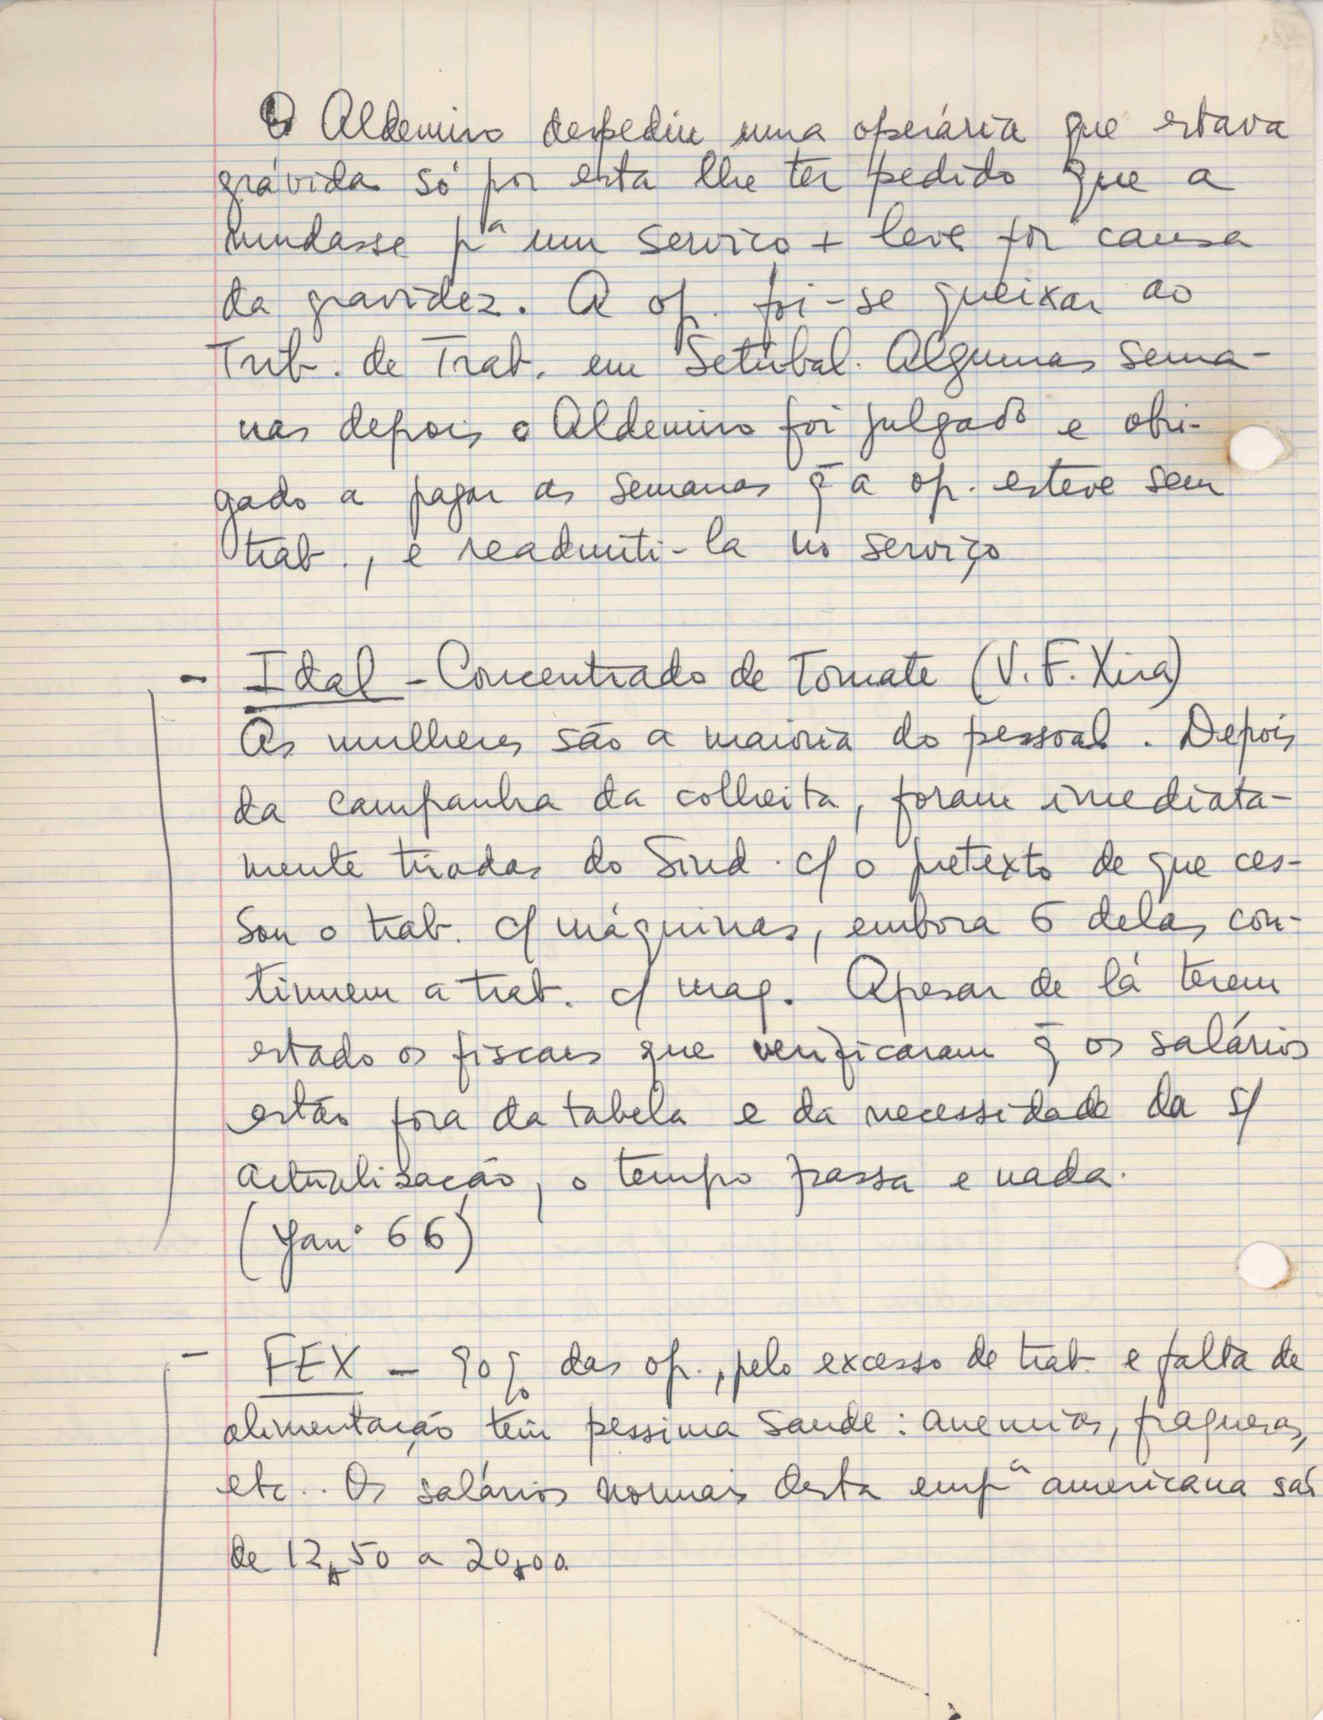 O Aldemiro despediu uma operária que estava
grávida só por esta lhe ter pedido que a
mudasse pª um serviço + leve por causa
da gravidez. A op. foi-se queixar ao
Trib. de Trab. em Setúbal. Algumas sema-
nas depois o Aldemiro foi julgado e obri-
gado a pagar as semanas q̄ a op. esteve sem
trab., e readmiti-la no serviço
- Idal - Concentrado de Tomate (V. F. Xira)
As mulheres são a maioria do pessoal. Depois
da campanha da colheita, foram imediata-
mente tiradas do Sind. c/ o pretexto de que ces-
sou o trab. c/ máquinas, embora 6 delas con-
tinuem a trab. c/ maq. Apesar de lá terem
estado os fiscais que verificaram q̄ os salários
estão fora da tabela e da necessidade da s/
actualização, o tempo passa e nada.
(Janº 66)
- FEX - 90% das op., pelo excesso de trab. e falta de
alimentação têm pessima saude: anemias, fraquezas,
etc.. Os salários normais desta empª americana são
de 12$50 a 20$00.